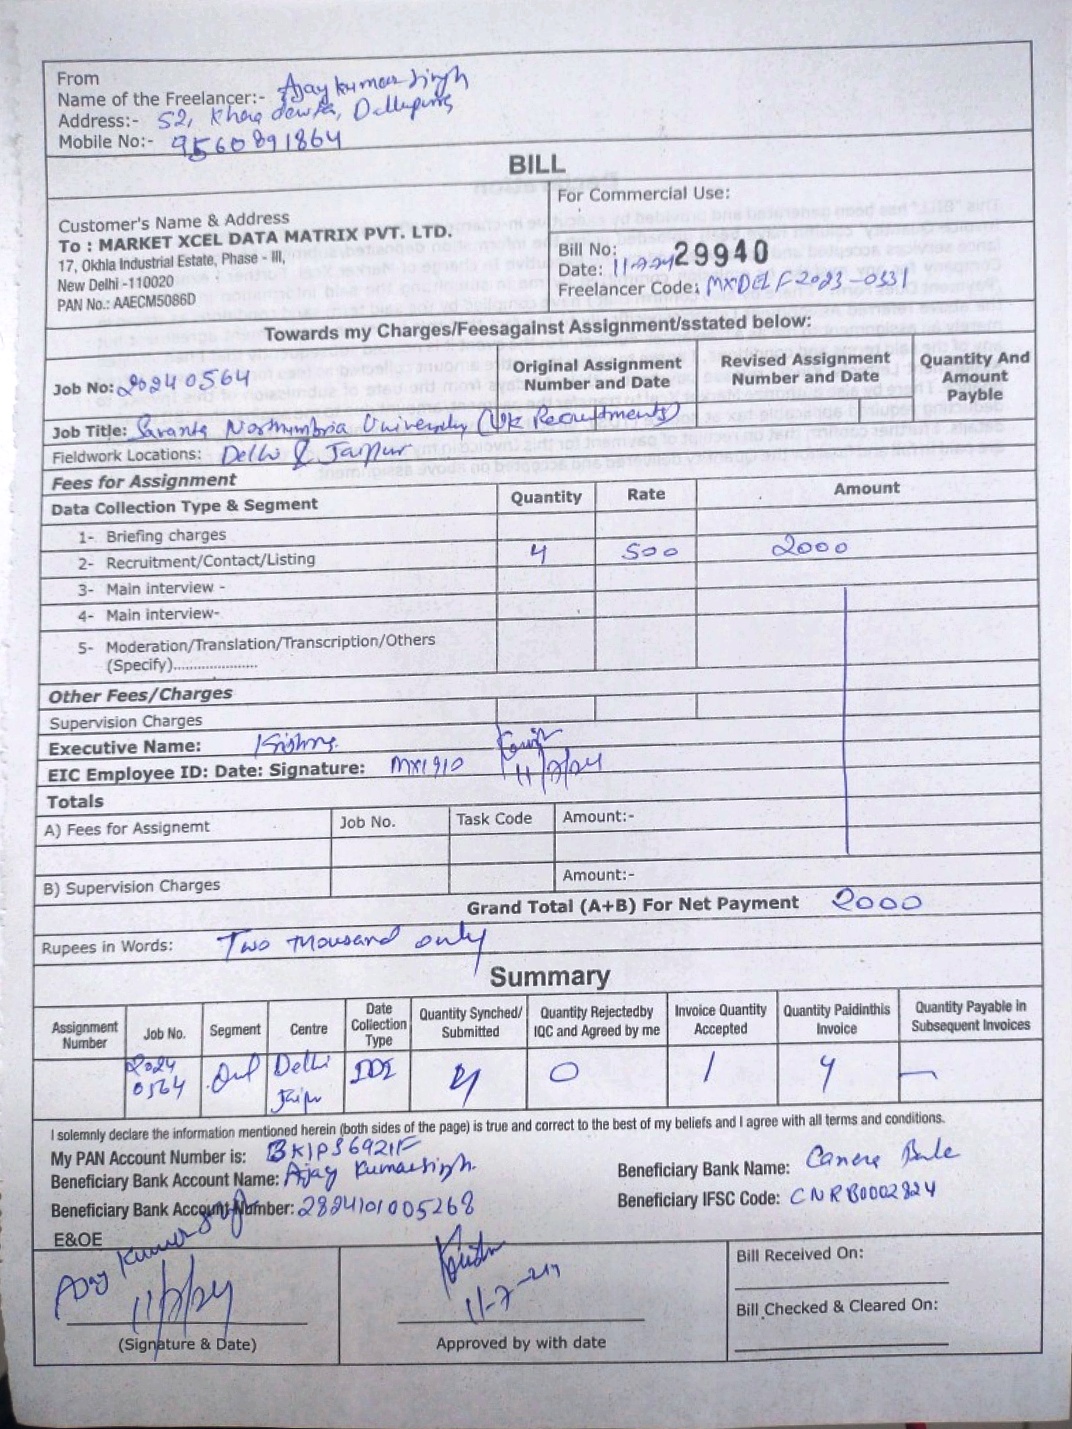 From
Name of the Freelancer:- Ajay Kumar Singh
Address:- 52,
Mobile No:- 9560891864
BILL
Customer's Name & Address
To : MARKET XCEL DATA MATRIX PVT. LTD.
17, Okhla Industrial Estate, Phase - III,
New Delhi -110020
PAN No.: AAECM5086D
For Commercial Use:
Bill No: 29940
Date: 11-7-24
Freelancer Code: MXDELF2023-0331
Towards my Charges/Feesagainst Assignment/sstated below:
Job No: 20240564
Original Assignment Number and Date
Revised Assignment Number and Date
Quantity And Amount Payble
Job Title: Northumbria University (UK Recruitments)
Fieldwork Locations: Delhi & Jaipur
Fees for Assignment
Data Collection Type & Segment Quantity Rate Amount
1- Briefing charges
2- Recruitment/Contact/Listing 4 500 2000
3- Main interview -
4- Main interview-
5- Moderation/Translation/Transcription/Others
(Specify).....................
Other Fees/Charges
Supervision Charges
Executive Name:
EIC Employee ID: Date: Signature: MX1910 11/7/24
Totals
A) Fees for Assignemt Job No. Task Code Amount:-
B) Supervision Charges Amount:-
Grand Total (A+B) For Net Payment 2000
Rupees in Words: Two thousand only
Summary
Assignment Number Job No. Segment Centre Date Collection Type Quantity Synched/ Submitted Quantity Rejectedby IQC and Agreed by me Invoice Quantity Accepted Quantity Paidinthis Invoice Quantity Payable in Subsequent Invoices
2024 0564 Delhi Jaipur IDI 4 0 1 4 —
I solemnly declare the information mentioned herein (both sides of the page) is true and correct to the best of my beliefs and I agree with all terms and conditions.
My PAN Account Number is: BKIPS6921F
Beneficiary Bank Account Name: Ajay Kumar Singh.
Beneficiary Bank Name: Canera
Beneficiary Bank Account Number: 2824101005268
Beneficiary IFSC Code: CNRB0002824
E&OE
Ajay Kumar Singh
11/7/24
(Signature & Date)
11-7-24
Approved by with date
Bill Received On:
Bill Checked & Cleared On: